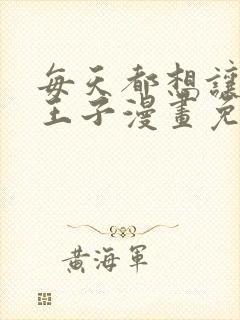 每天都想讓
王子漫畫免
黃海軍